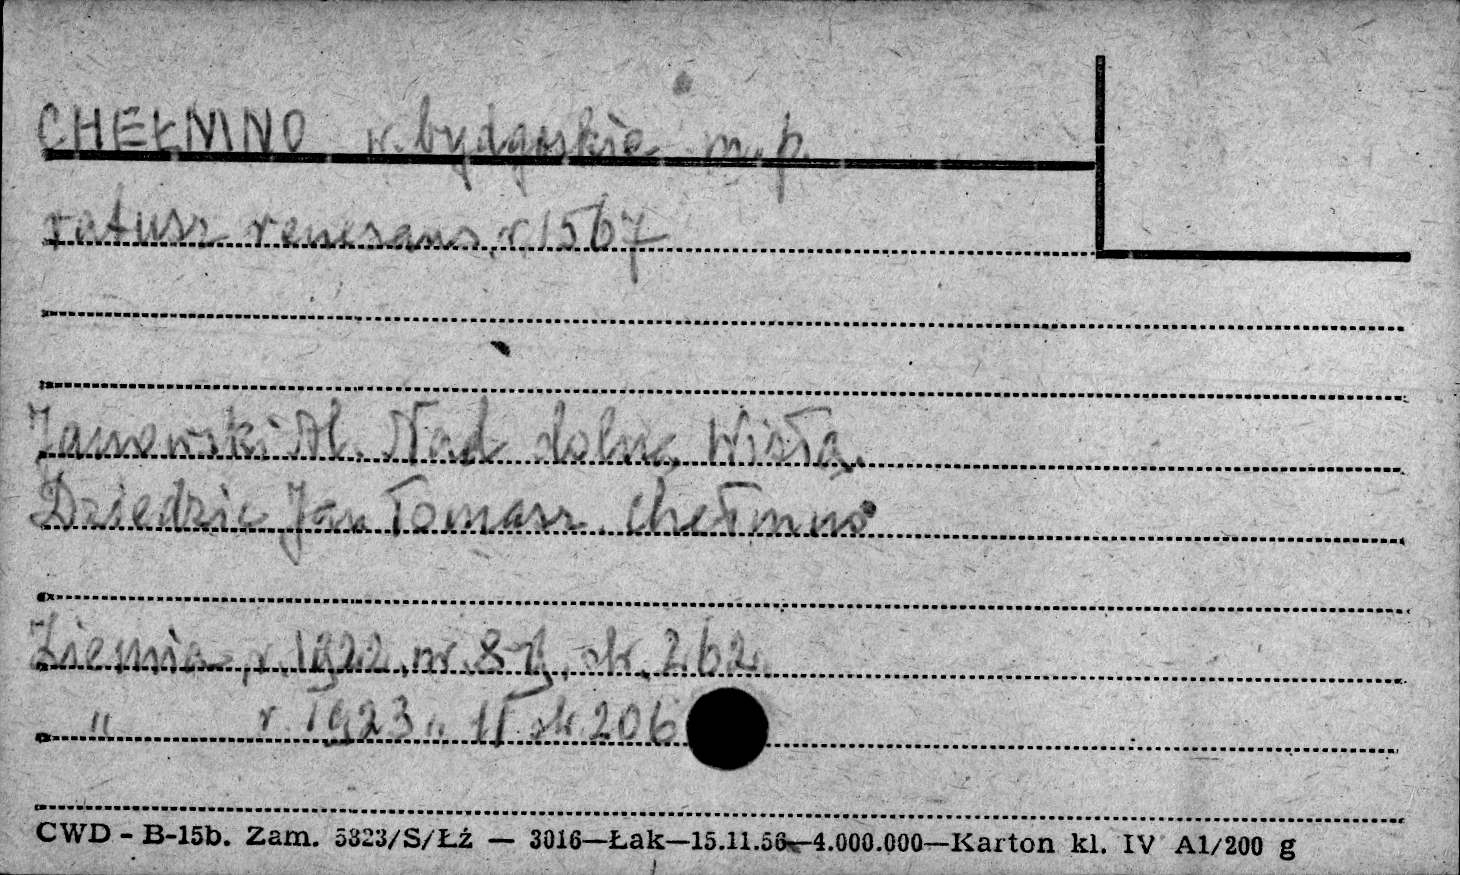 CHEŁMNO w. bydgoskie m. p.
ratusz renesans. r. 1567
Janowski Al. Nad dolną Wisłą.
Dziedzic Jan Tomasz. Chełmno
Ziemia, r. 1922, nr. 8-9, str. 262.
" r. 1923 " 11 str. 206
CWD - B-15b. Zam. 5823/S/Łź — 3016—Łak—15.11.56—4.000.000—Karton kl. IV A1/200 g